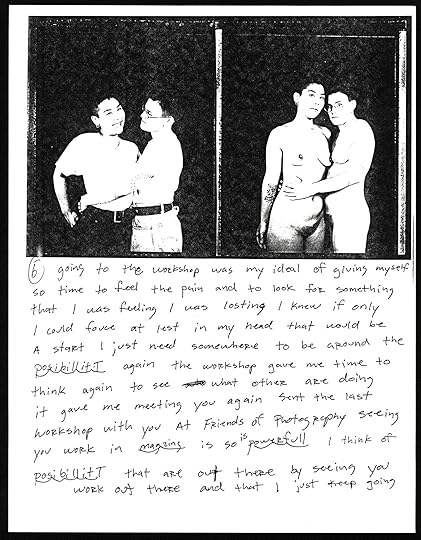 6 going to the workshop was my ideal of giving myself
so time to feel the pain and to look for something
that I was feeling I was losting I knew if only
I could force at lest in my head that would be
A start I just need somewhere to be around the
posibillitI again the workshop gave me time to
think again to see what other are doing
it gave me meeting you again sent the last
workshop with you At Friends of Photography seeing
you work in magazing is so is powerfull I think of
posibillitI that are out there by seeing you
work out there and that I just keep going